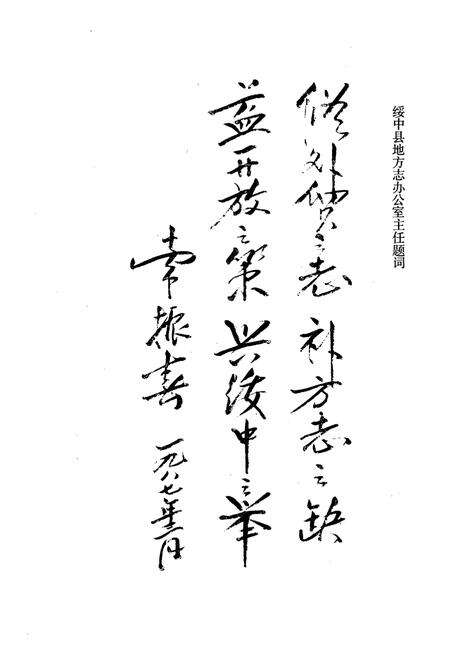 绥中县地方志办公室主任题词
修外贸之志 补方志之缺
益开放之策 兴绥中之举
常振喜 一九八七年二月